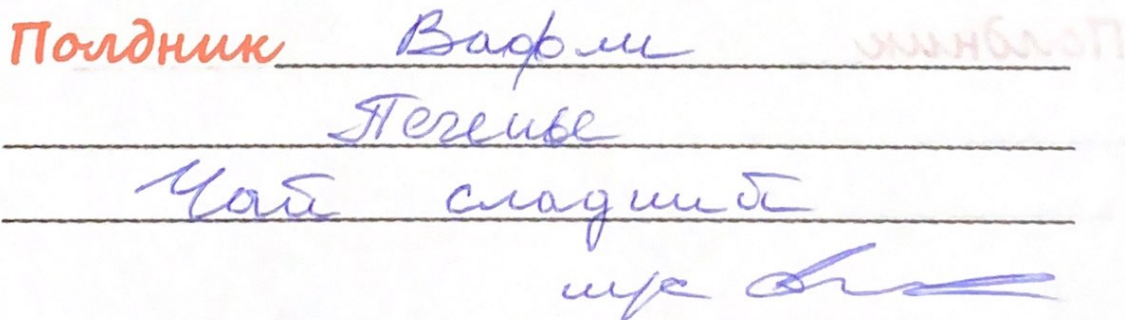 Полдник Вафли
Печенье
Чай сладкий